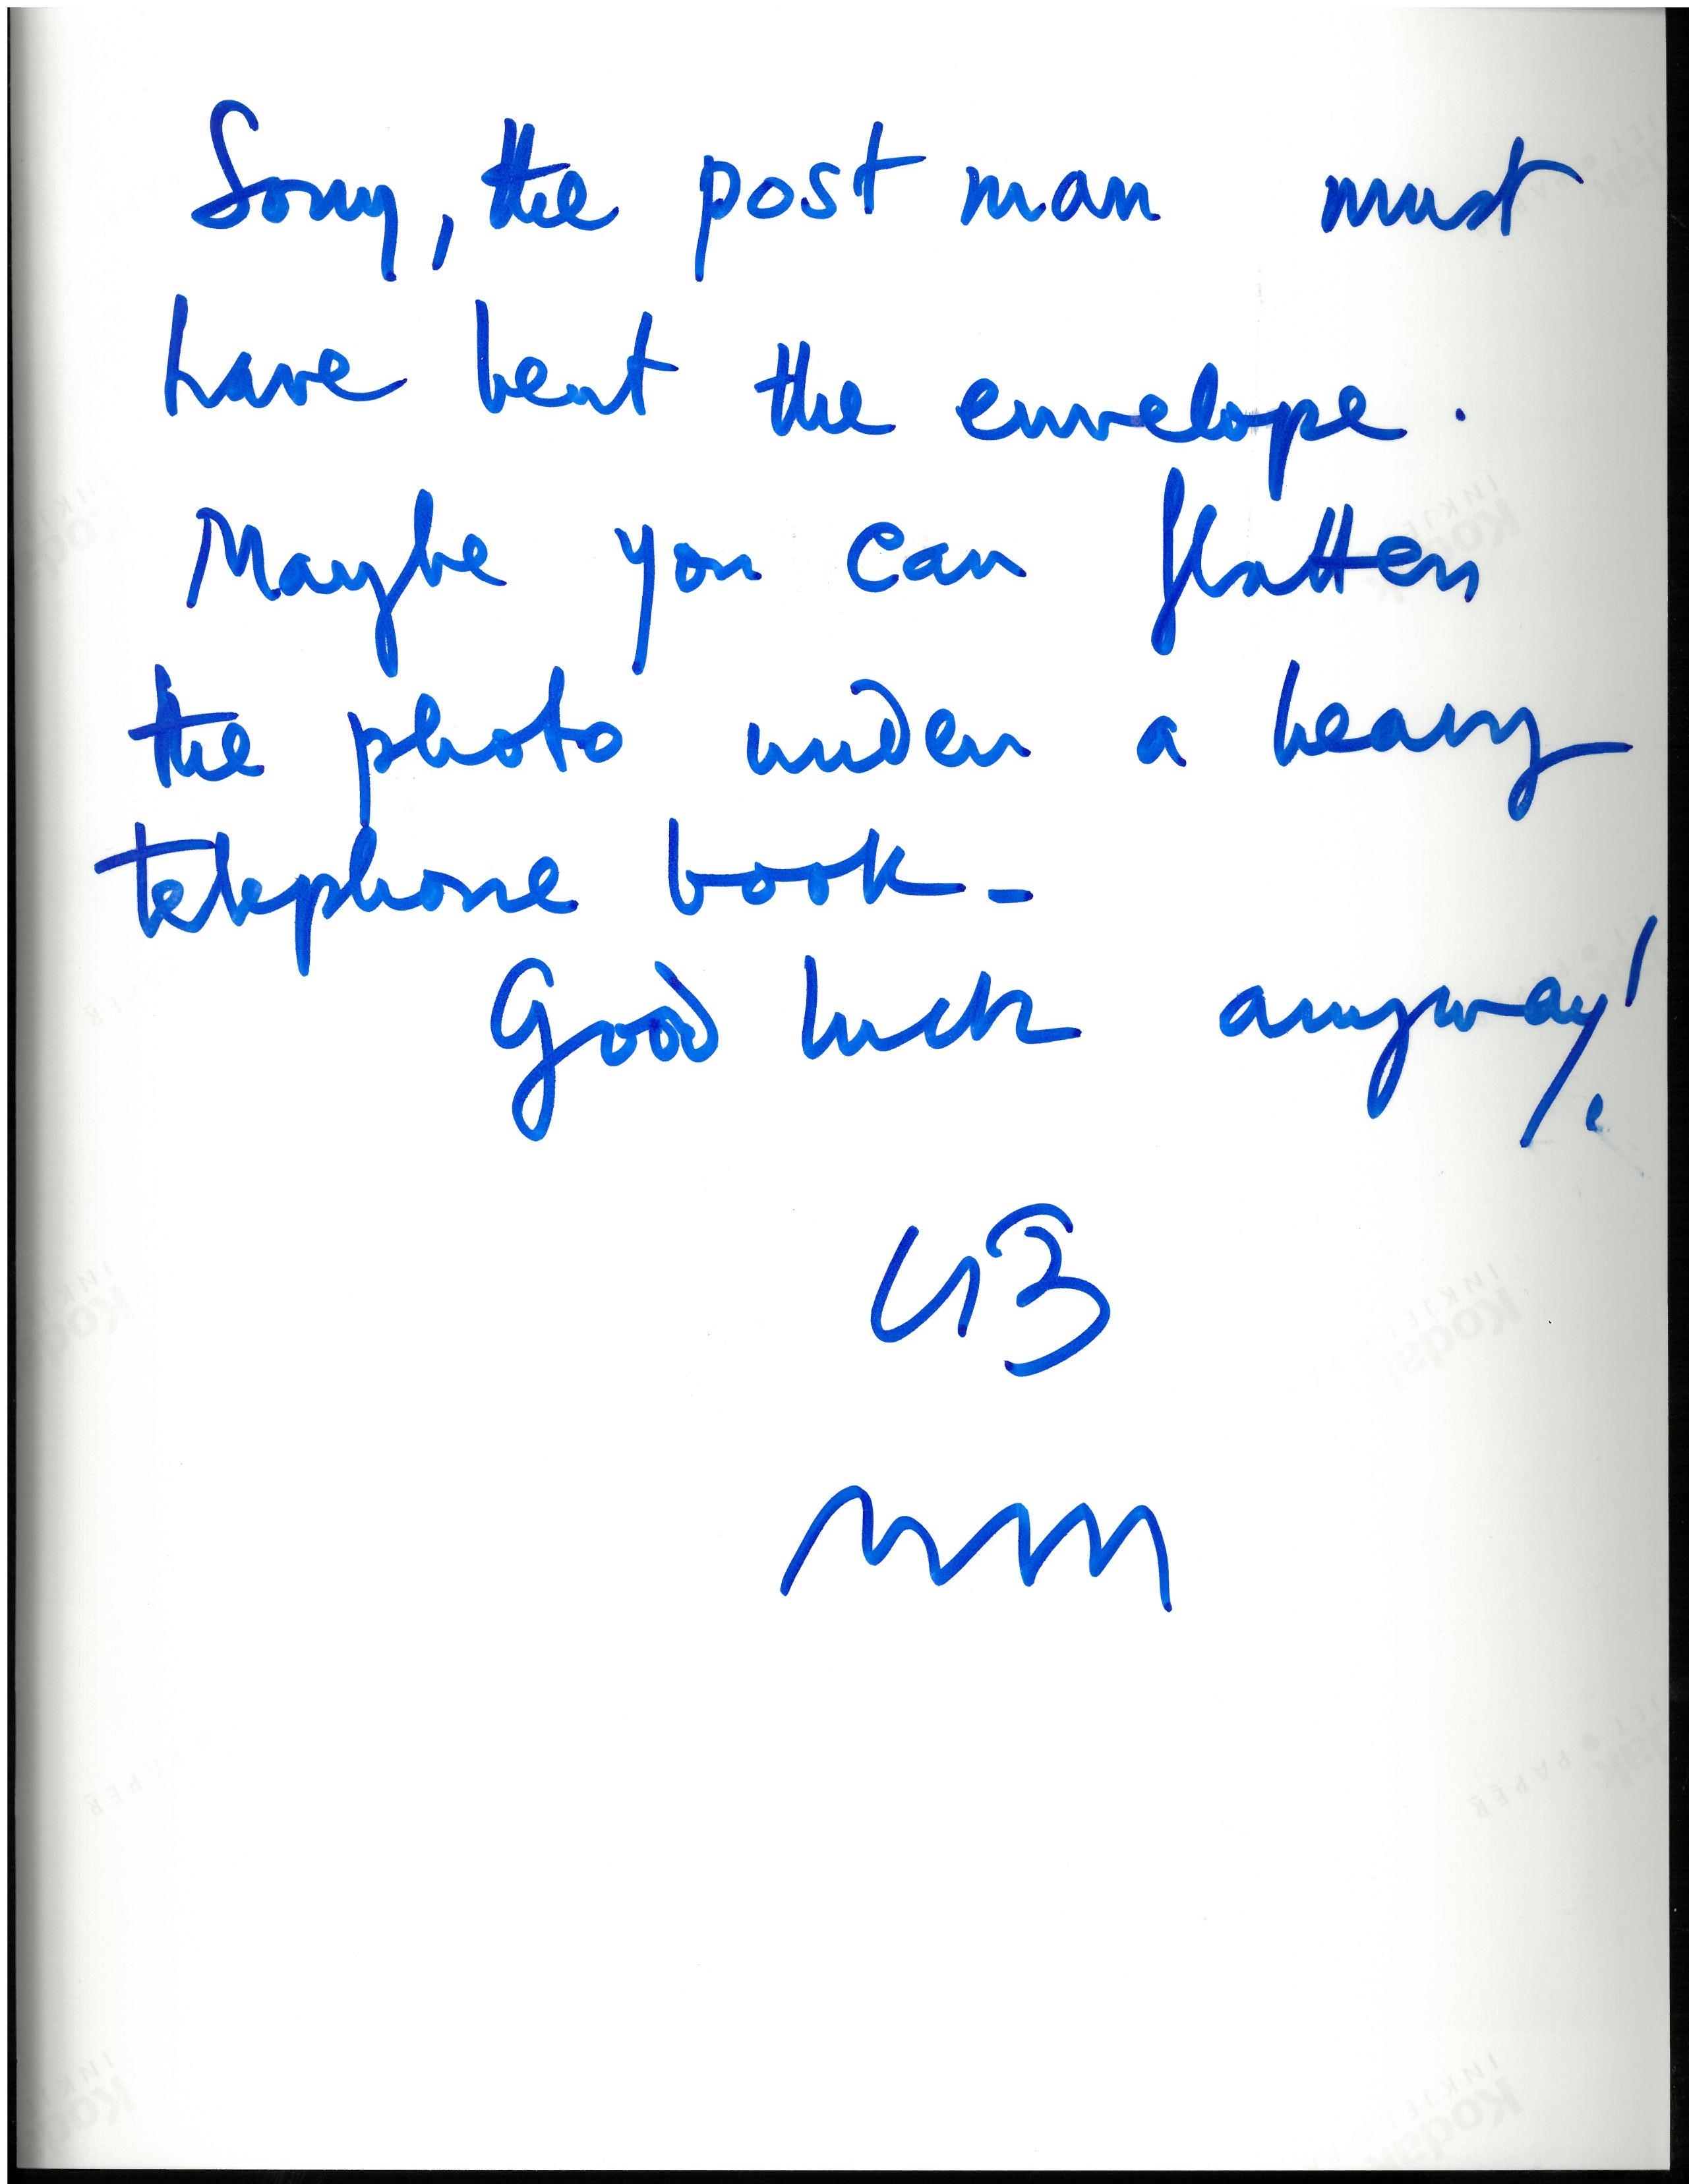 Sorry, the post man must
have bent the envelope.
Maybe you can flatten
the photo under a heavy
telephone book-
Good luck anyway!
UB